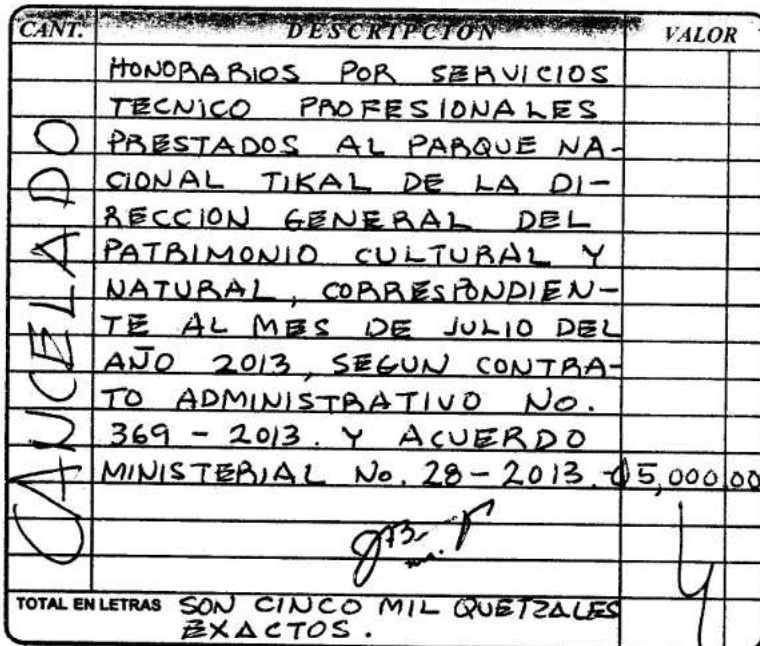 CANT. DESCRIPCION VALOR
HONORARIOS POR SERVICIOS
TECNICO PROFESIONALES
PRESTADOS AL PARQUE NA-
CIONAL TIKAL DE LA DI-
RECCION GENERAL DEL
PATRIMONIO CULTURAL Y
NATURAL, CORRESPONDIEN-
TE AL MES DE JULIO DEL
AÑO 2013, SEGUN CONTRA-
TO ADMINISTRATIVO No.
369 - 2013. Y ACUERDO
MINISTERIAL No. 28 - 2013. Q5,000 00
CANCELADO
TOTAL EN LETRAS SON CINCO MIL QUETZALES
EXACTOS.